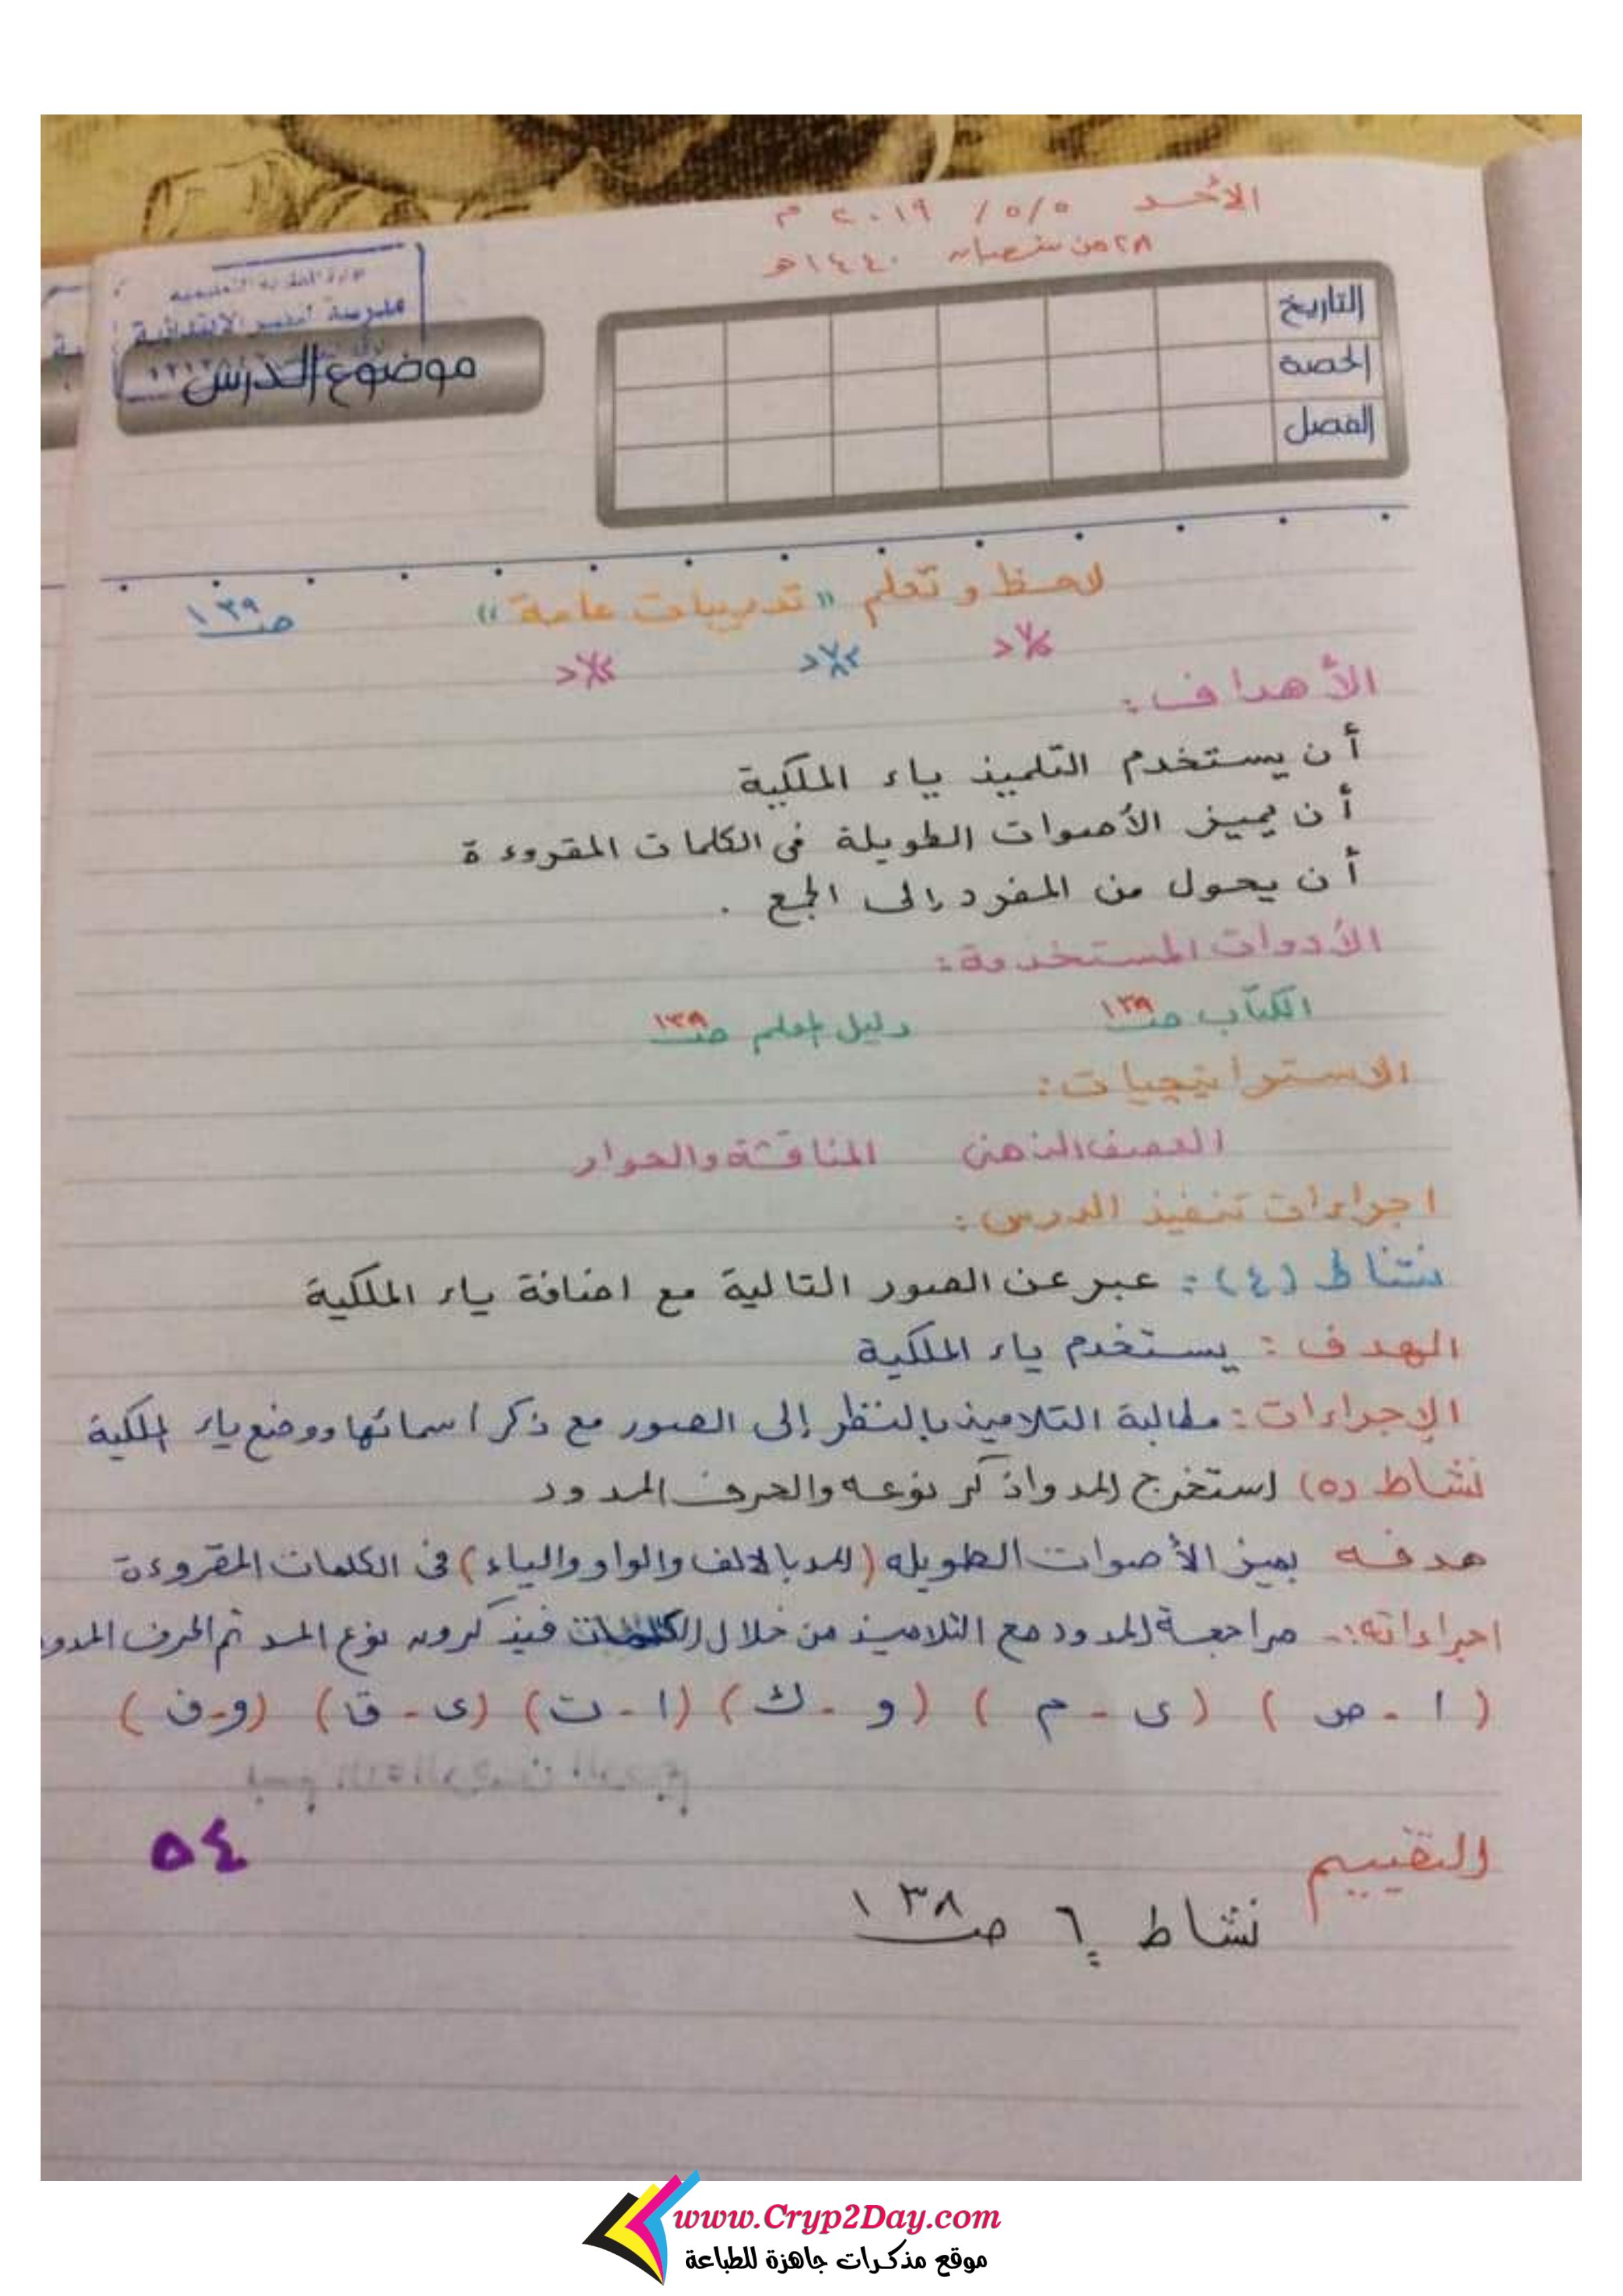 الأحد ٥/٥/ ٢٠١٩ م
٢٨ من شعبان ١٤٤٠هـ
مدرسة الابتدائية
موضوع الدرس
التاريخ
الحصة
الفصل
لاحظ وتعلم "تدريبات عامة" صـ ١٣٩
الأهداف:
أن يستخدم التلميذ ياء الملكية
أن يميز الأصوات الطويلة فى الكلمات المقروءة
أن يحول من المفرد إلى الجمع .
الأدوات المستخدمة:
الكتاب صـ ١٣٨ دليل المعلم صـ ١٣٨
الاستراتيجيات:
العصف الذهنى المناقشة والحوار
اجراءات تنفيذ الدرس:
نشاط (٤): عبر عن الصور التالية مع اضافة ياء الملكية
الهدف : يستخدم ياء الملكية
الإجراءات: مطالبة التلاميذ بالنظر إلى الصور مع ذكر اسمائها ووضع ياء الملكية
نشاط (٥) استخرج المد واذكر نوعه والحرف الممدود
هدفه يميز الأصوات الطويله (المد بالالف والواو والياء) فى الكلمات المقروءة
اجراءاته:- مراجعة المدود مع التلاميذ من خلال الكلمات فيذكرون نوع المد ثم الحرف الممدو
(ا - ص) (ى - م) (و - ك) (ا - ت) (ى - ق) (و - ف)
٥٤
التقييم
نشاط ٦ صـ ١٣٨
www.Cryp2Day.com
موقع مذكرات جاهزة للطباعة